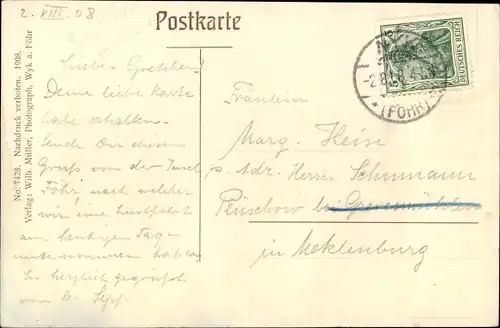 2. VIII. 08
Postkarte
No. 7428. Nachdruck verboten. 1908.
Verlag: Wilh. Müller, Photograph, Wyk a. Föhr
DEUTSCHES REICH
-2.8.08
* (FÖHR) *
Liebes Gretchen!
Deine liebe Karte
habe erhalten.
Sende Dir diesen
Gruss von der Insel
Föhr, nach welcher
wir eine Lustfahrt
am heutigen Tage
unternommen haben.
Sei herzlich gegrüsst
von
Fräulein
Marg. Heise
ps. Adr. Herrn Schumann
Plüschow bei Grevesmühlen
in Meklenburg